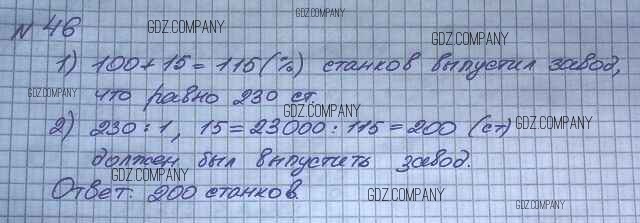 GDZ.COMPANY
N 46 GDZ.COMPANY
GDZ.COMPANY
1) 100 + 15 = 115 (%) станков выпустил завод,
GDZ.COMPANY что равно 230 ст.
GDZ.COMPANY
2) 230 : 1, 15 = 23000 : 115 = 200 (ст) GDZ.COMPANY
должен был выпустить завод.
GDZ.COMPANY
Ответ: 200 станков.
GDZ.COMPANY
GDZ.COMPANY